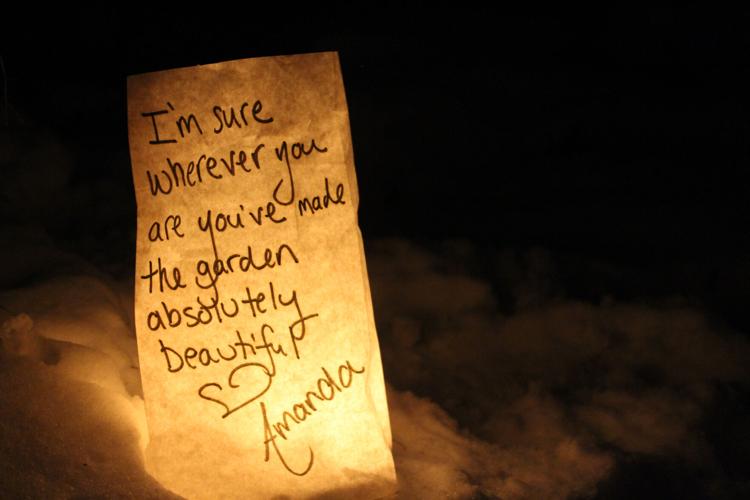 I'm sure
wherever you
are you've made
the garden
absolutely
beautiful
Amanda